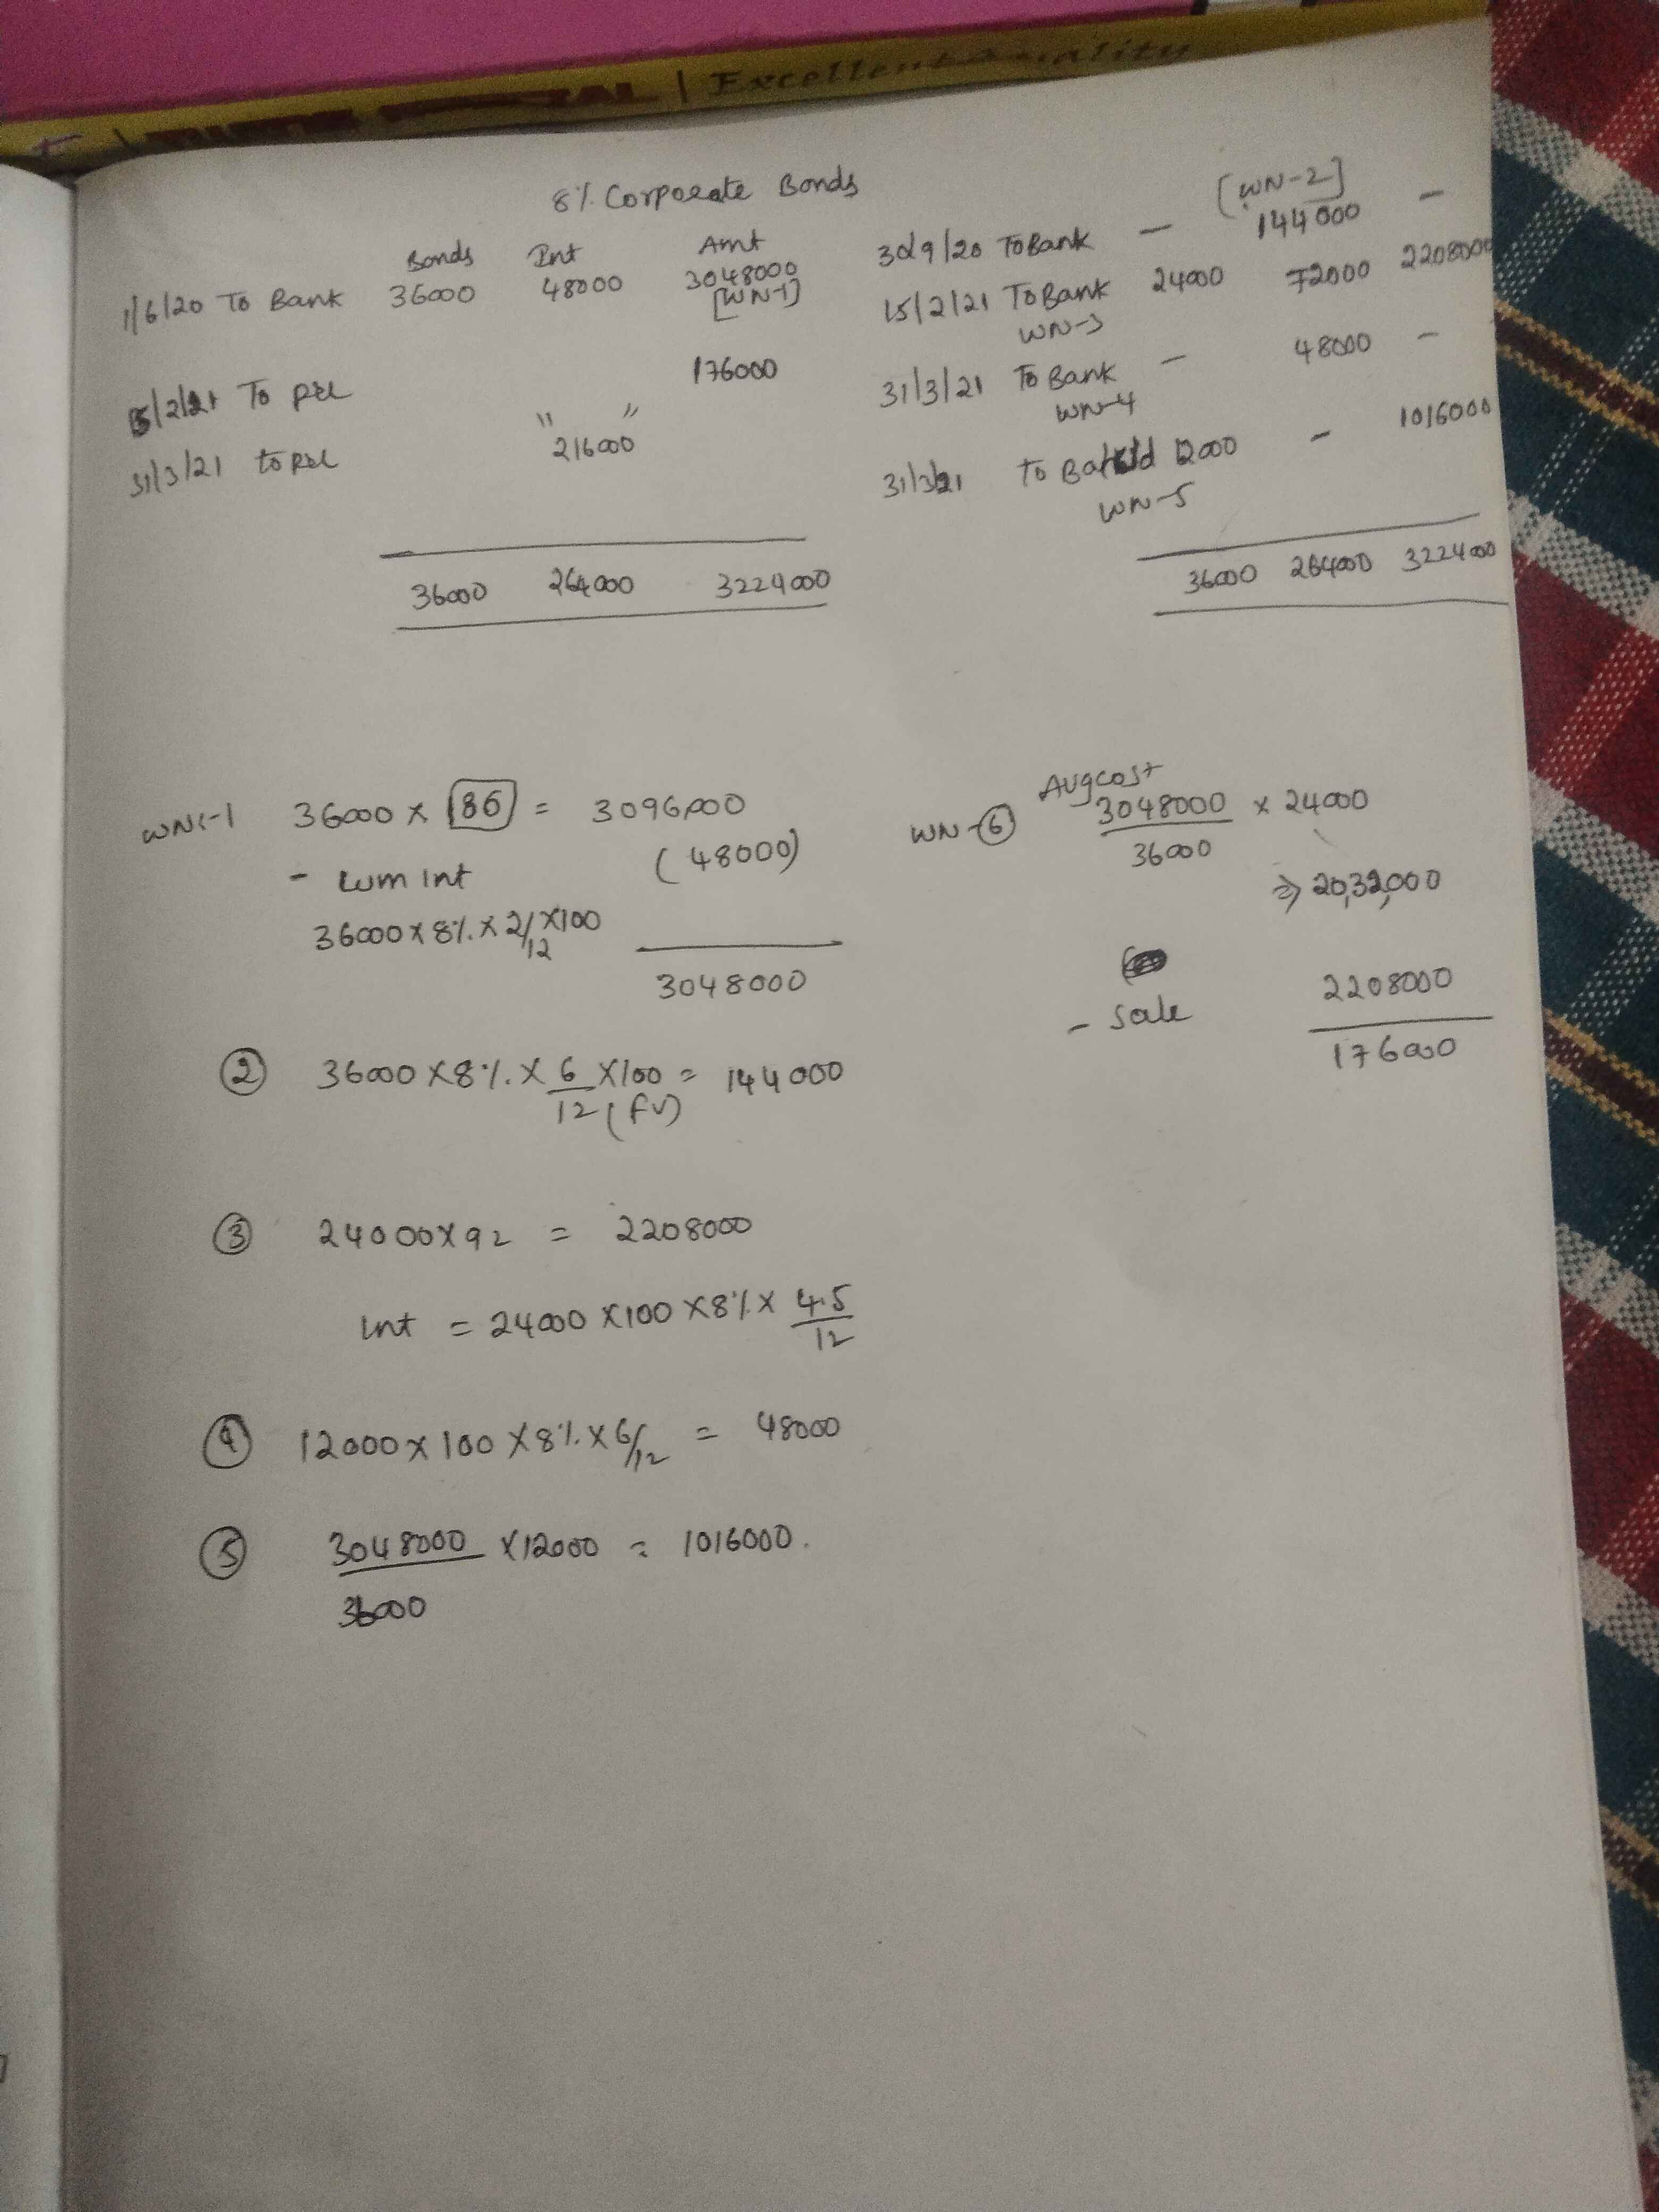 Excellent Quality
8% Corporate Bonds
Bonds Int Amt
1/6/20 To Bank 36000 48000 3048000
[WN-1]
15/2/21 To P&L 176000
" "
31/3/21 to P&L 216000
36000 264000 3224000
[WN-2]
30/9/20 To Bank — 144000 —
15/2/21 To Bank 24000 72000 2208000
WN-3
31/3/21 To Bank — 48000 —
WN-4
31/3/21 To Bal c/d 12000 - 1016000
WN-5
36000 264000 3224000
WN-1 36000 x 86 = 3096000
- Cum Int (48000)
36000 x 8% x 2/12 x 100
3048000
② 36000 x 8% x 6/12 x 100 = 144000
(FV)
③ 24000 x 92 = 2208000
Int = 24000 x 100 x 8% x 4.5/12
④ 12000 x 100 x 8% x 6/12 = 48000
⑤ 3048000 x 12000 = 1016000.
36000
Avg cost
WN-⑥ 3048000 x 24000
36000
⇒ 20,32,000
- Sale 2208000
176000